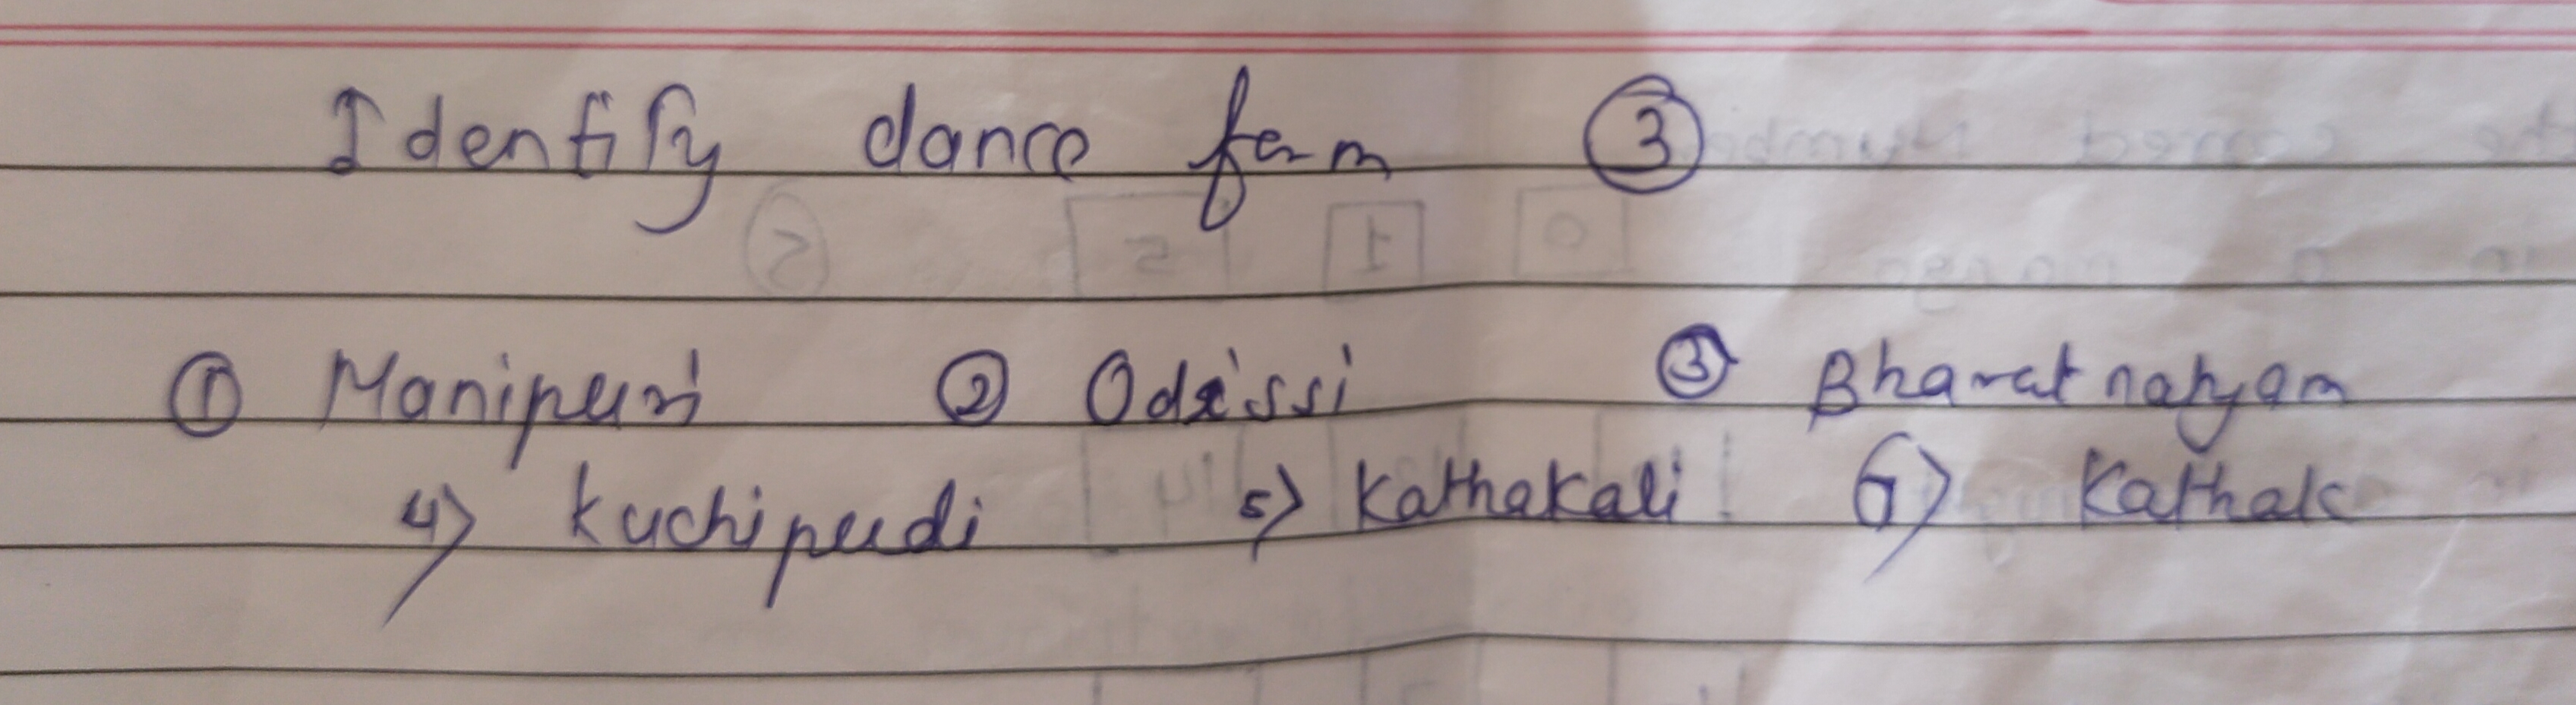 Identify dance form ③
① Manipuri ② Odissi ③ Bharatnatyam
4) Kuchipudi 5) Kathakali 6) Kathak